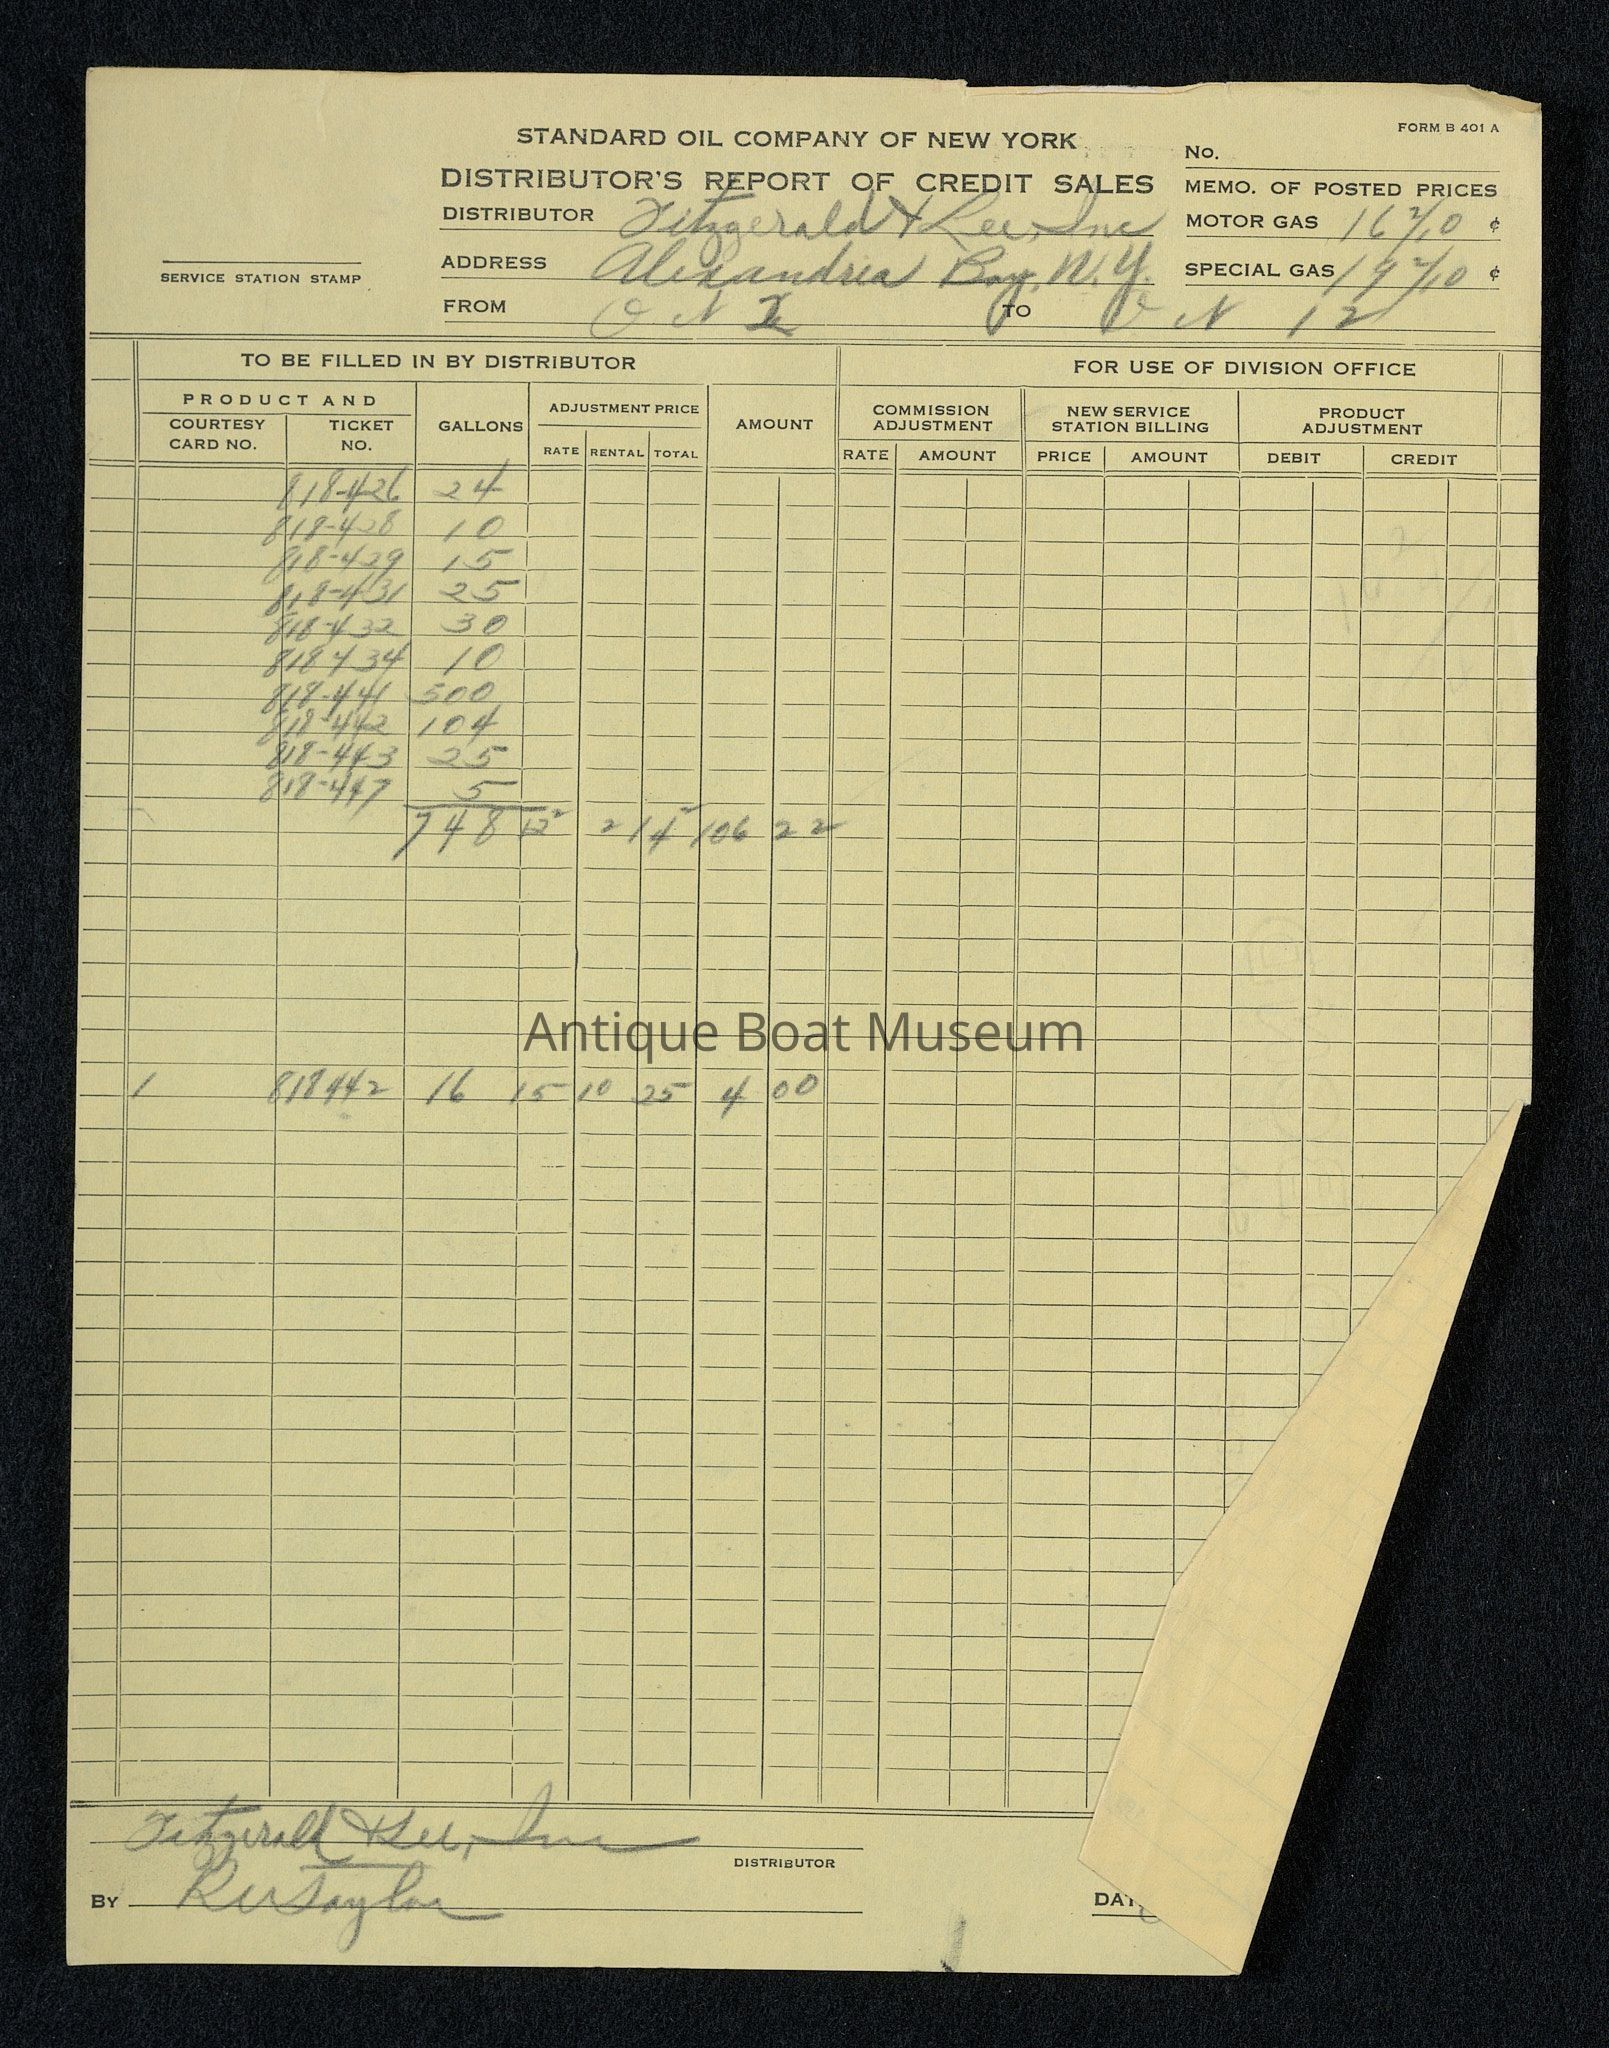 FORM B 401 A
STANDARD OIL COMPANY OF NEW YORK
No.
DISTRIBUTOR'S REPORT OF CREDIT SALES
MEMO. OF POSTED PRICES
DISTRIBUTOR Fitzgerald & Lee, Inc
MOTOR GAS 16 2/10 ¢
ADDRESS Alexandria Bay, N.Y.
SPECIAL GAS 19 2/10 ¢
SERVICE STATION STAMP
FROM TO 12
TO BE FILLED IN BY DISTRIBUTOR
FOR USE OF DIVISION OFFICE
PRODUCT AND
COURTESY CARD NO. TICKET NO. GALLONS ADJUSTMENT PRICE AMOUNT COMMISSION ADJUSTMENT NEW SERVICE STATION BILLING PRODUCT ADJUSTMENT
RATE RENTAL TOTAL RATE AMOUNT PRICE AMOUNT DEBIT CREDIT
818-426 24
818-428 10
818-429 15
818-431 25
818-432 30
818-434 10
818-441 500
818-442 104
818-443 25
818-447 5
748 12² 2 14² 106 22
Antique Boat Museum
1 818442 16 15 10 25 4 00
Fitzgerald & Lee, Inc
DISTRIBUTOR
BY Taylor
DAT